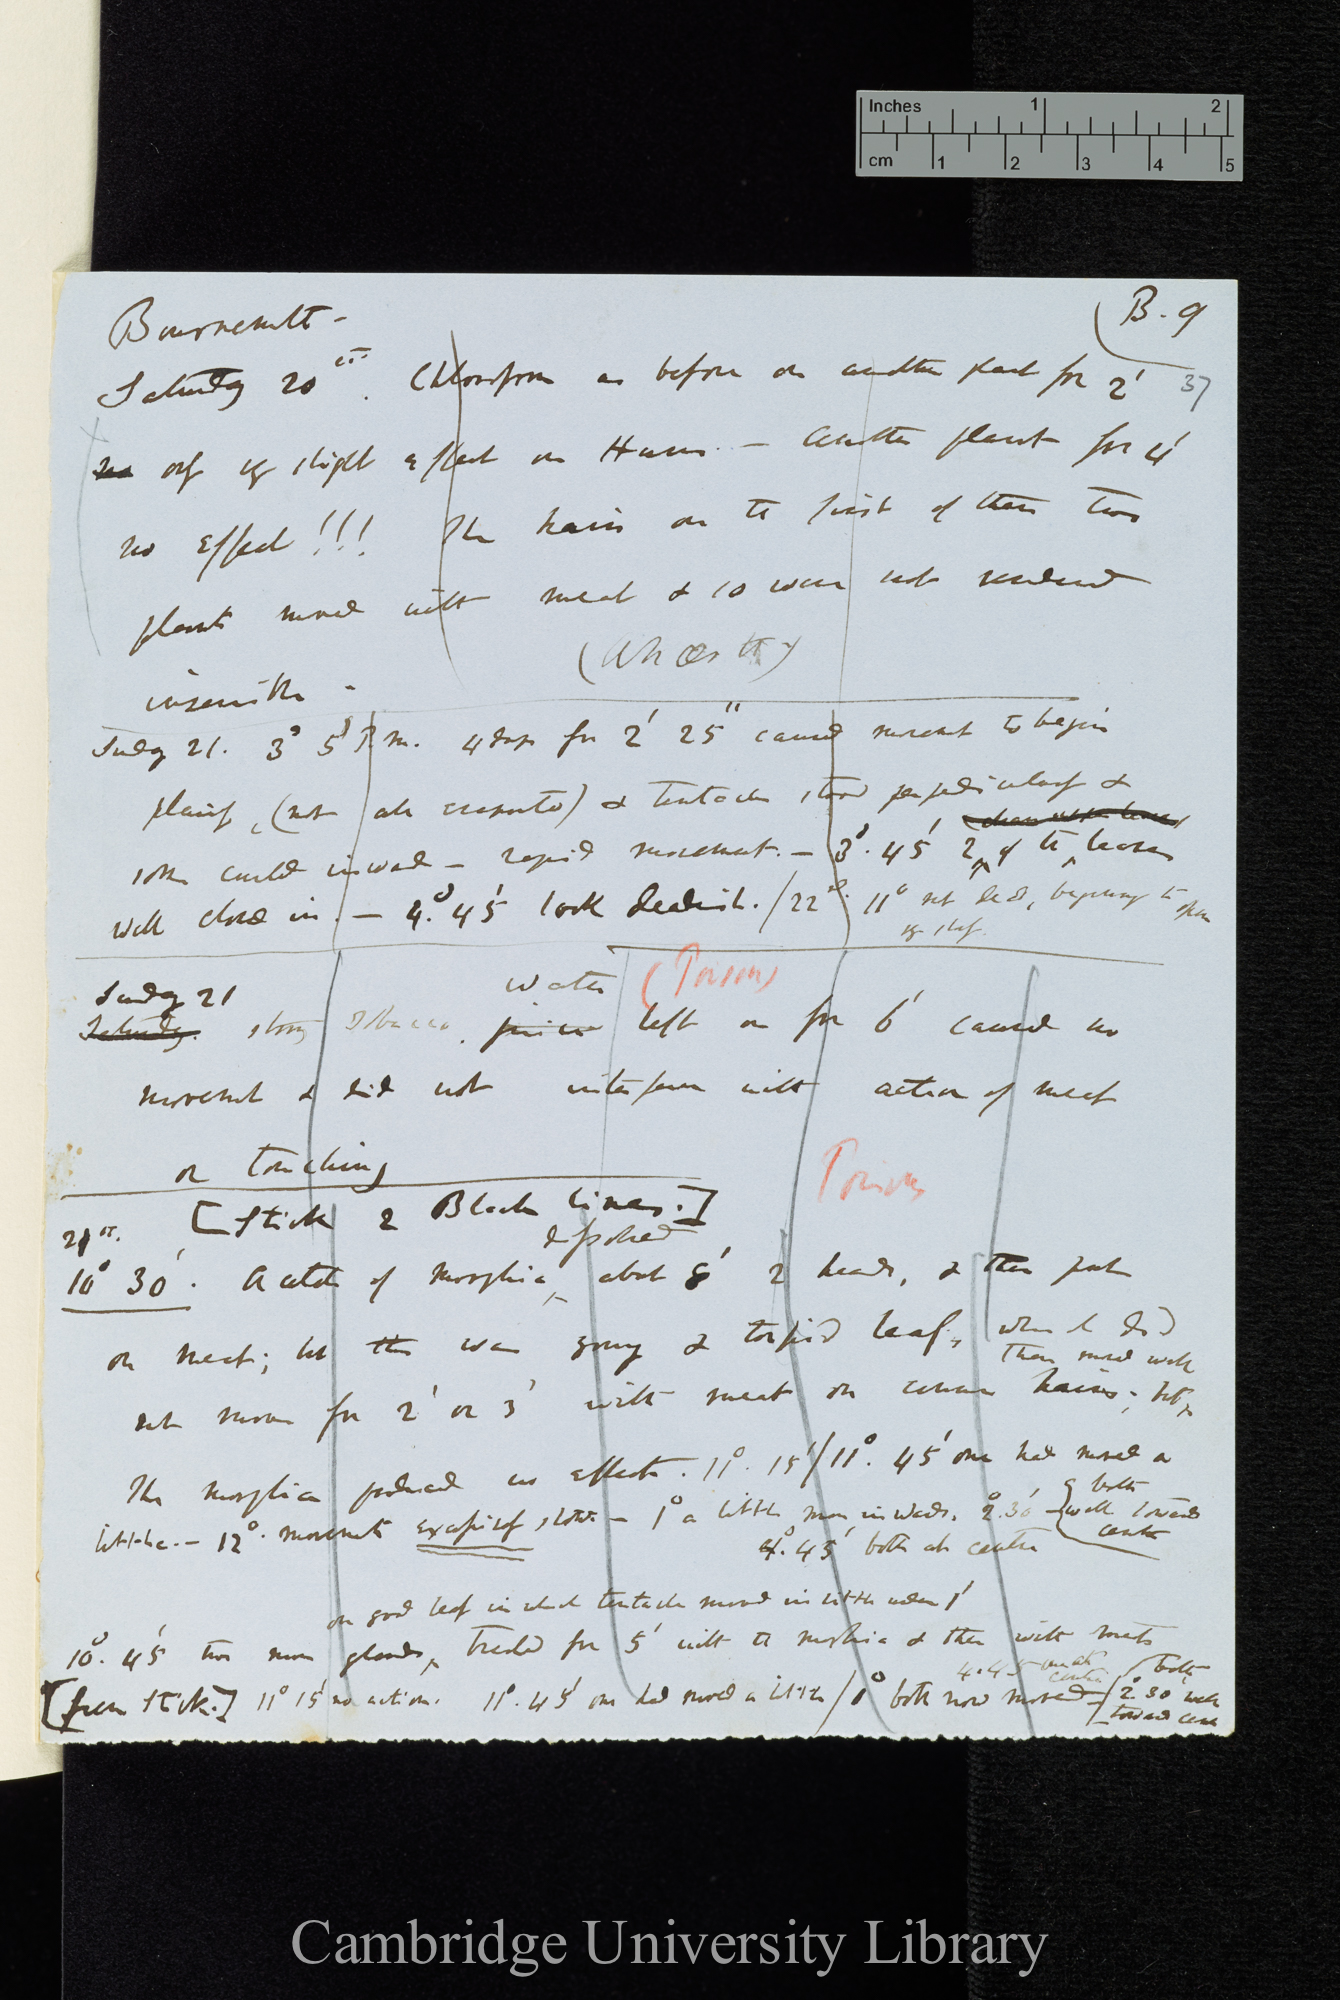 Inches 1 2
cm 1 2 3 4 5
B. 9
37
Bournemouth -
Saturday 20th. Chloroform as before on another plant for 2'
only very slight effect on Hairs - Another plant for 4'
no effect!!! The hairs on the first of these two
plants moved with meat & so were not rendered
insensible -
Sunday 21. 3° 5' P.m. 4 drops for 2' 25" caused movement to begin
plainly, (not all evaporated) & tentacles stood perpendicularly &
some curled inward - rapid movement. - 3°. 45' 2 of the leaves
well closed in. - 4°. 45' look deadish. / 22d. 11° not dead, beginning to open
very slightly.
(Poison)
water
Sunday 21
Saturday. strong Tobacco juice left on for 6' caused no
movement & did not interfere with action of meat
or touching
Poisons
[Stick 2 Black lines.]
21st. dissolved
10° 30'. Acetate of Morphia, about 8' 2 heads, & then put
on meat; but this was young & torpid leaf, & did
not move for 2' or 3' with meat on common hairs; but
then moved well
The morphia produced no effect. 11°. 15' / 11°. 45' one had moved a
little. - 12°. movement excessively slow - 1° a little more inwards. 2°. 30' both
well towards
centre
4°. 45' both at centre
on good leaf in which tentacles moved in little under 1'
10°. 45' two more glands, treated for 5' with the morphia & then with meat
4. 45 one at centre
[green Stick.] 11° 15' no action. 11°. 45' one had moved a little / 1° both now moved - both
2° 30' well
toward centre
Cambridge University Library